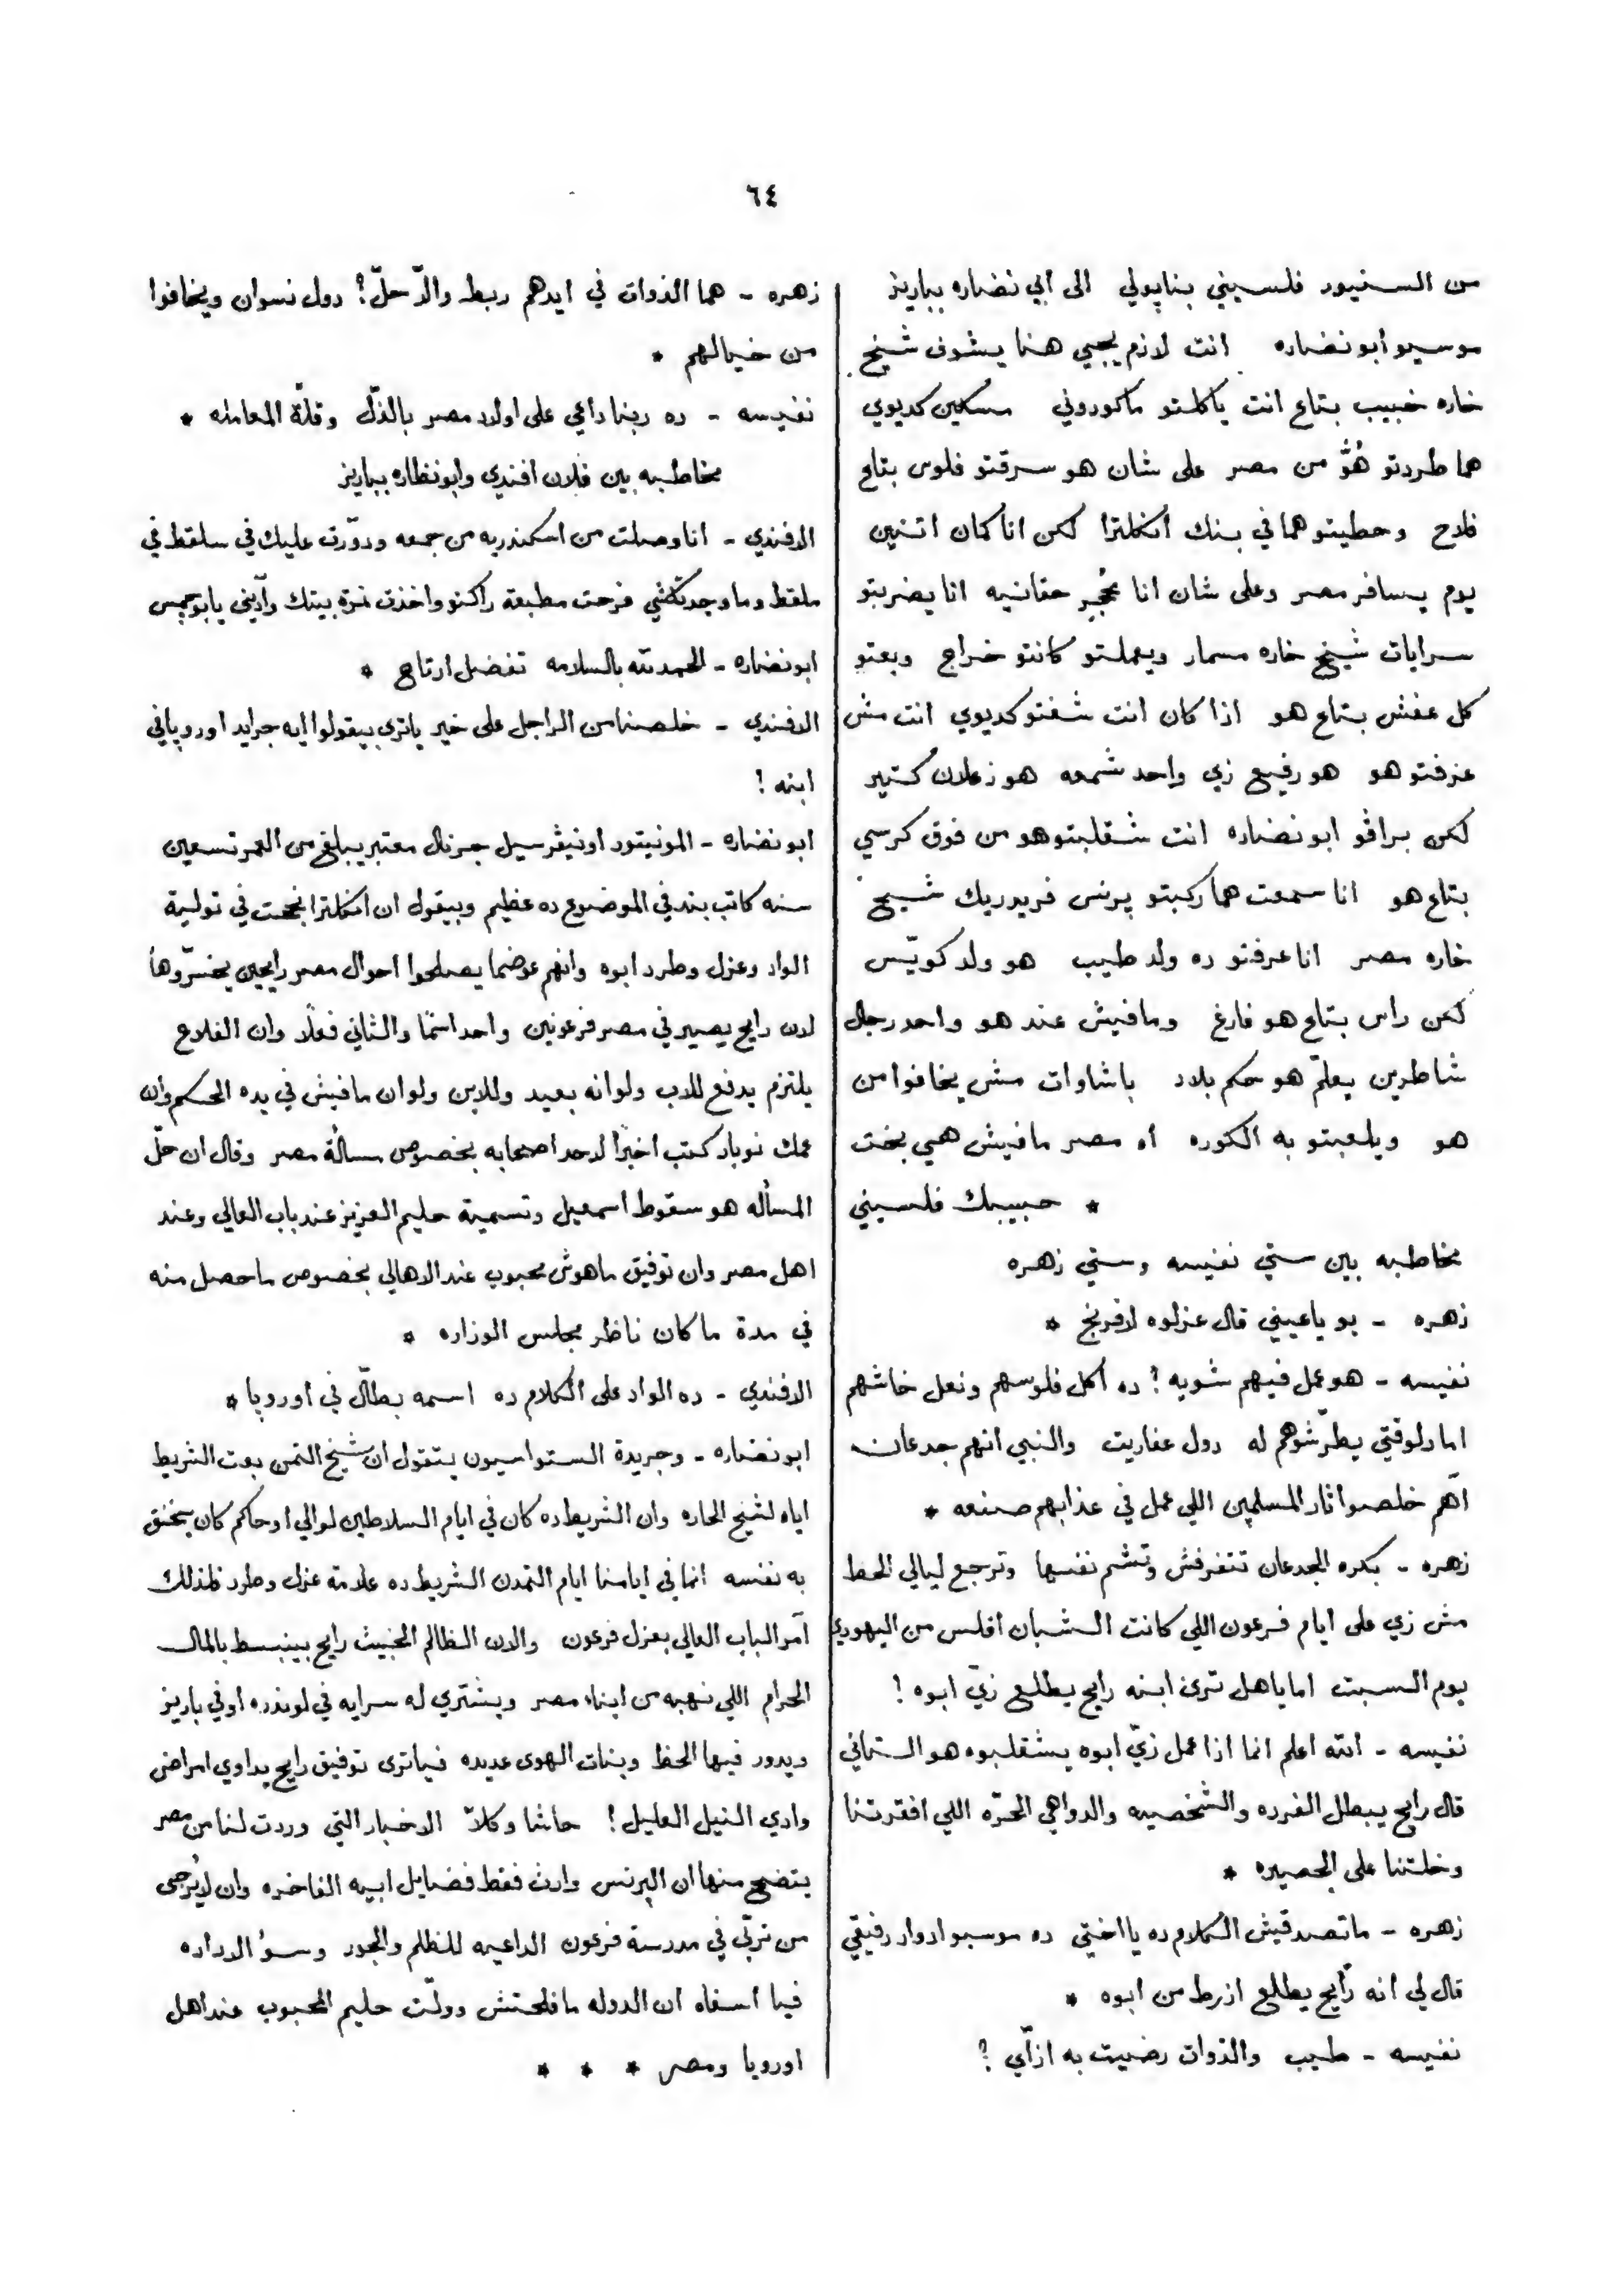 ٦٤
من السنيور فلسيني بنابولي الى ابي نضاره بباريز
موسيو أبو نضاره انت لازم يجي هنا يشوف شيخ
خاره خبيب بتاع انت ياكلتو ماكوروني مسكين كديوي
هما طردتو هُوَّ من مصر على شان هو سرقتو فلوس بتاع
فلاح وحطيتو هما في بنك انكلترا لكن انا كمان اتنين
يوم يسافر مصر وعلى شان انا حقانيه انا يضربتو
سرايات شيخ خاره مسمار ويعملتو كانتو خراج وبعتو
كل عفش بتاع هو اذا كان انت شفتو كديوي انت مش
عرفتو هو هو رفيع زي واحد شمعه هو زعلان كتير
لكن براڤو ابو نضاره انت شقلبتو هو من فوق كرسي
بتاع هو انا سمعت هما ركبتو پرنس فريدريك شيخ
خاره مصر انا عرفتو ده ولد طيب هو ولد كويّس
لكن راس بتاع هو فارغ ومافيش عند هو واحد رجال
شاطرين يعلّم هو حكم بلاد باشاوات مش يخافوا من
هو ويلعبتو به الكوره اه مصر مافيش هي بخت
* حبيبك فلسيني
مخاطبه بين ستي نفيسه وستي زهره
زهره - يو ياعيني قال عزلوه لافرنج *
نفيسه - هو عمل فيهم شويه ؟ ده أكل فلوسهم ونعل خاشهم
اما دلوقتي يطرّشوهم له دول عفاريت والنبي انهم جدعان
اهم خلصوا ثار المسلمين اللي عمل في عذابهم صنعه *
زهره - بكره الجدعان تتفرفش وتشم نفسها وترجع ليالي الحظ
مش زي على ايام فرعون اللي كانت الشبان افلس من اليهودي
يوم السبت اما ياهل ترى ابنه رايح يطلع زيّ ابوه !
نفيسه - الله اعلم انما اذا عمل زيّ ابوه يشقلبوه هو التاني
قال رايح يبطل الفرده والشخصيه والدواهي الحرّه اللي افقرتنا
وخلتنا على الحصيره *
زهره - ماتصدقيش الكلام ده يا اختي ده موسيو ادوار رفيقي
قال لي انه رايح يطلع ازرط من ابوه *
نفيسه - طيب والذوات رضيت به ازاّي ؟
زهره - هما الذوات في ايدهم ربط والّا حلّ ؟ دول نسوان ويخافوا
من خيالهم *
نفيسه - ده ربنا داعي على اولاد مصر بالذلّ وقلّة المعامله *
مخاطبه بين فلان افندي وابو نظاره بباريز
الافندي - انا وصلت من اسكندريه من جمعه ودوّرت عليك في سلقط في
ملقط وما وجدتكشي فرحت مطبعة واخذت نمرة بيتك وآديني يا ابو
ابو نضاره - الحمد لله بالسلامه تفضل ارتاح *
الافندي - خلصنا من الراجل على خير ياترى بيقولوا ايه جرايد اوروپا في
ابنه !
ابو نضاره - المونيتور اونيڤرسيل جرنال معتبر يبلغ من العمر تسعين
سنه كاتب بند في الموضوع ده عظيم وبيقول ان انكلترا نجحت في تولية
الواد وعزل وطرد ابوه وانهم عوضما يصلحوا احوال مصر رايحين يخسّروها
لان رايح يصير في مصر فرعونين واحد اسمًا والثاني فعلًا وان الفلاح
يلتزم يدفع للاب ولو انه بعيد وللابن ولو ان مافيش في يده الحكم وان
عمك نوبار كتب اخيرًا لاحد اصحابه بخصوص مسألة مصر وقال ان حلّ
المسأله هو سقوط اسمعيل وتسمية حليم العزيز عند باب العالي وعند
اهل مصر وان توفيق ماهوش محبوب عند الاهالي بخصوص ما حصل منه
في مدة ما كان ناظر مجلس الوزاره *
الافندي - ده الواد على الكلام ده اسمه بطّال في اوروپا *
ابو نضاره - وجريدة الستواسيون بتقول ان شيخ التمن بعت الشريط
اياه لشيخ الحاره وان الشريط ده كان في ايام السلاطين لوالي او حاكم كان يخنق
به نفسه انما في ايامنا ايام التمدن الشريط ده علامة عزل وطرد فلذلك
آمر الباب العالي بعزل فرعون والان الظالم الخبيث رايح يينبسط بالمال
الحرام اللي نهبه من ابناء مصر ويشتري له سرايه في لوندره او في باريز
ويدور فيها الحظ وبنات الهوى عديده فياترى توفيق رايح يداوي امراض
وادي النيل العليل ! حاشا وكلّا الاخبار التي وردت لنا من مصر
يتضح منها ان البرنس وارث فقط فضايل ابيه الفاخره وان لا يُرجى
من تربّى في مدرسة فرعون الداعيه للظلم والجور وسوٴ الاداره
فيا اسفاه ان الدوله مافلحتش وولّت حليم المحبوب عند اهل
اوروپا ومصر * * *